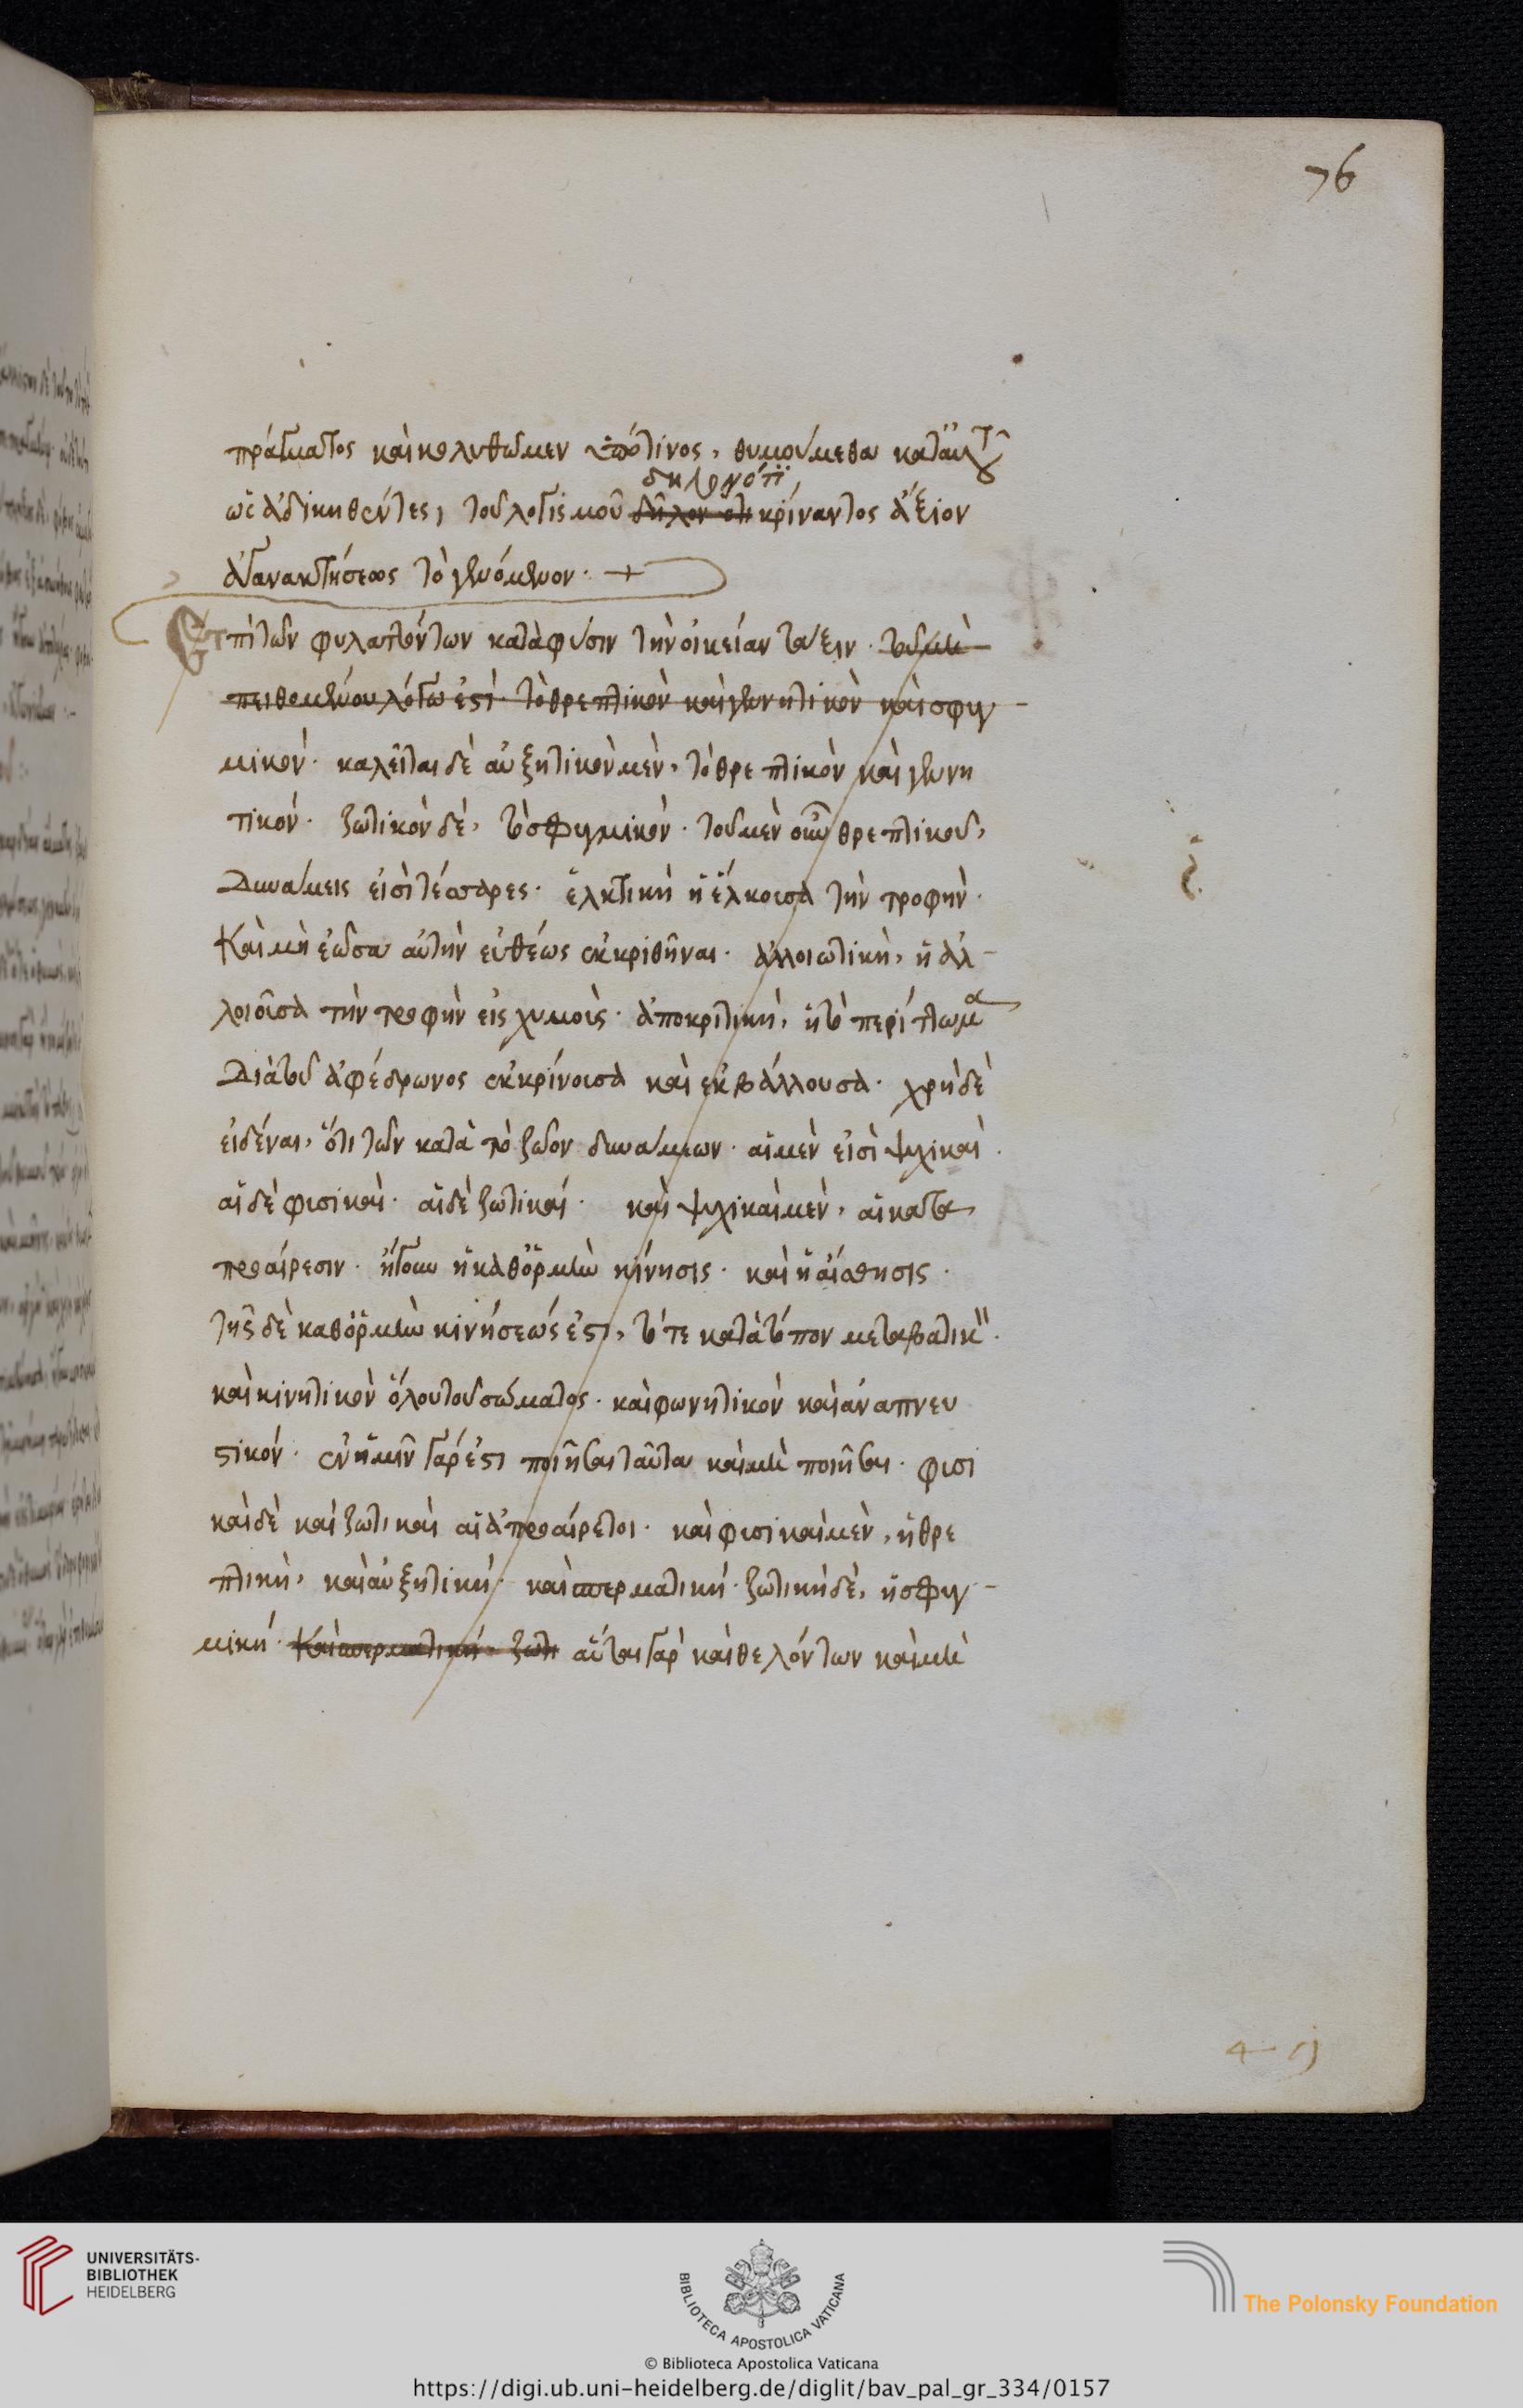 76
πράγματος καὶ κολυθῶμεν ὑπό τινος, θυμούμεθα κατ' αὐτοῦ
δηλονότι,
ὡς ἀδικηθέντες, τοῦ λογισμοῦ δῆλον ὅτι κρίναντος ἄξιον
ἀγανακτήσεως τὸ γενόμενον. +
Ἐπὶ τῶν φυλαττόντων κατὰ φύσιν τὴν οἰκείαν τάξιν. τοῦ μὴ
πειθομένου λόγω ἐστὶ. τὸ θρεπτικὸν καὶ γεννητικὸν καὶ σφυγ
μικόν. καλεῖται δὲ αὐξητικὸν μὲν, τὸ θρεπτικὸν καὶ γεννη
τικόν. ζωτικὸν δὲ, τὸ σφυγμικόν. τοῦ μὲν οὖν θρεπτικοῦ,
Δυνάμεις εἰσὶ τέσσαρες. ἑλκτικὴ ἡ ἕλκουσα τὴν τροφήν.
Καὶ μὴ ἐῶσα αὐτὴν εὐθέως ἐκκριθῆναι. ἀλλοιωτικὴ, ἡ ἀλ-
λοιοῦσα τὴν τροφὴν εἰς χυμούς. ἀποκριτικὴ, ἡ τὸ περίττωμα
Διὰ τοῦ ἀφέδρωνος ἐκκρίνουσα καὶ ἐκβάλλουσα. χρὴ δὲ
εἰδέναι, ὅτι τῶν κατὰ τὸ ζῶον δυνάμεων. αἱ μὲν εἰσὶ ψυχικαὶ.
αἱ δὲ φυσικαὶ. αἱ δὲ ζωτικαί. καὶ ψυχικαὶ μὲν, αἱ κατὰ
προαίρεσιν. ἤγουν ἡ καθ' ὁρμὴν κίνησις. καὶ ἡ αἴσθησις.
τῆς δὲ καθ' ὁρμὴν κινήσεώς ἐστι, τό τε κατὰ τόπον μεταβατικὸν.
καὶ κινητικὸν ὅλου τοῦ σώματος. καὶ φωνητικὸν καὶ ἀναπνευ
στικόν. ἐν ἡμῖν γάρ ἐστι ποιῆσαι ταῦτα καὶ μὴ ποιῆσαι. φυσι
καὶ δὲ καὶ ζωτικαὶ αἱ ἀπροαίρετοι. καὶ φυσικαὶ μὲν, ἡ θρε
πτικὴ, καὶ αὐξητικὴ. καὶ σπερματική. ζωτικὴ δὲ, ἡ σφυγ-
μική. Καὶ σπερματικὴ. ζωτι αὗται γὰρ καὶ θελόντων καὶ μὴ
UNIVERSITÄTS-
BIBLIOTHEK
HEIDELBERG
BIBLIOTECA APOSTOLICA VATICANA
The Polonsky Foundation
© Biblioteca Apostolica Vaticana
https://digi.ub.uni-heidelberg.de/diglit/bav_pal_gr_334/0157